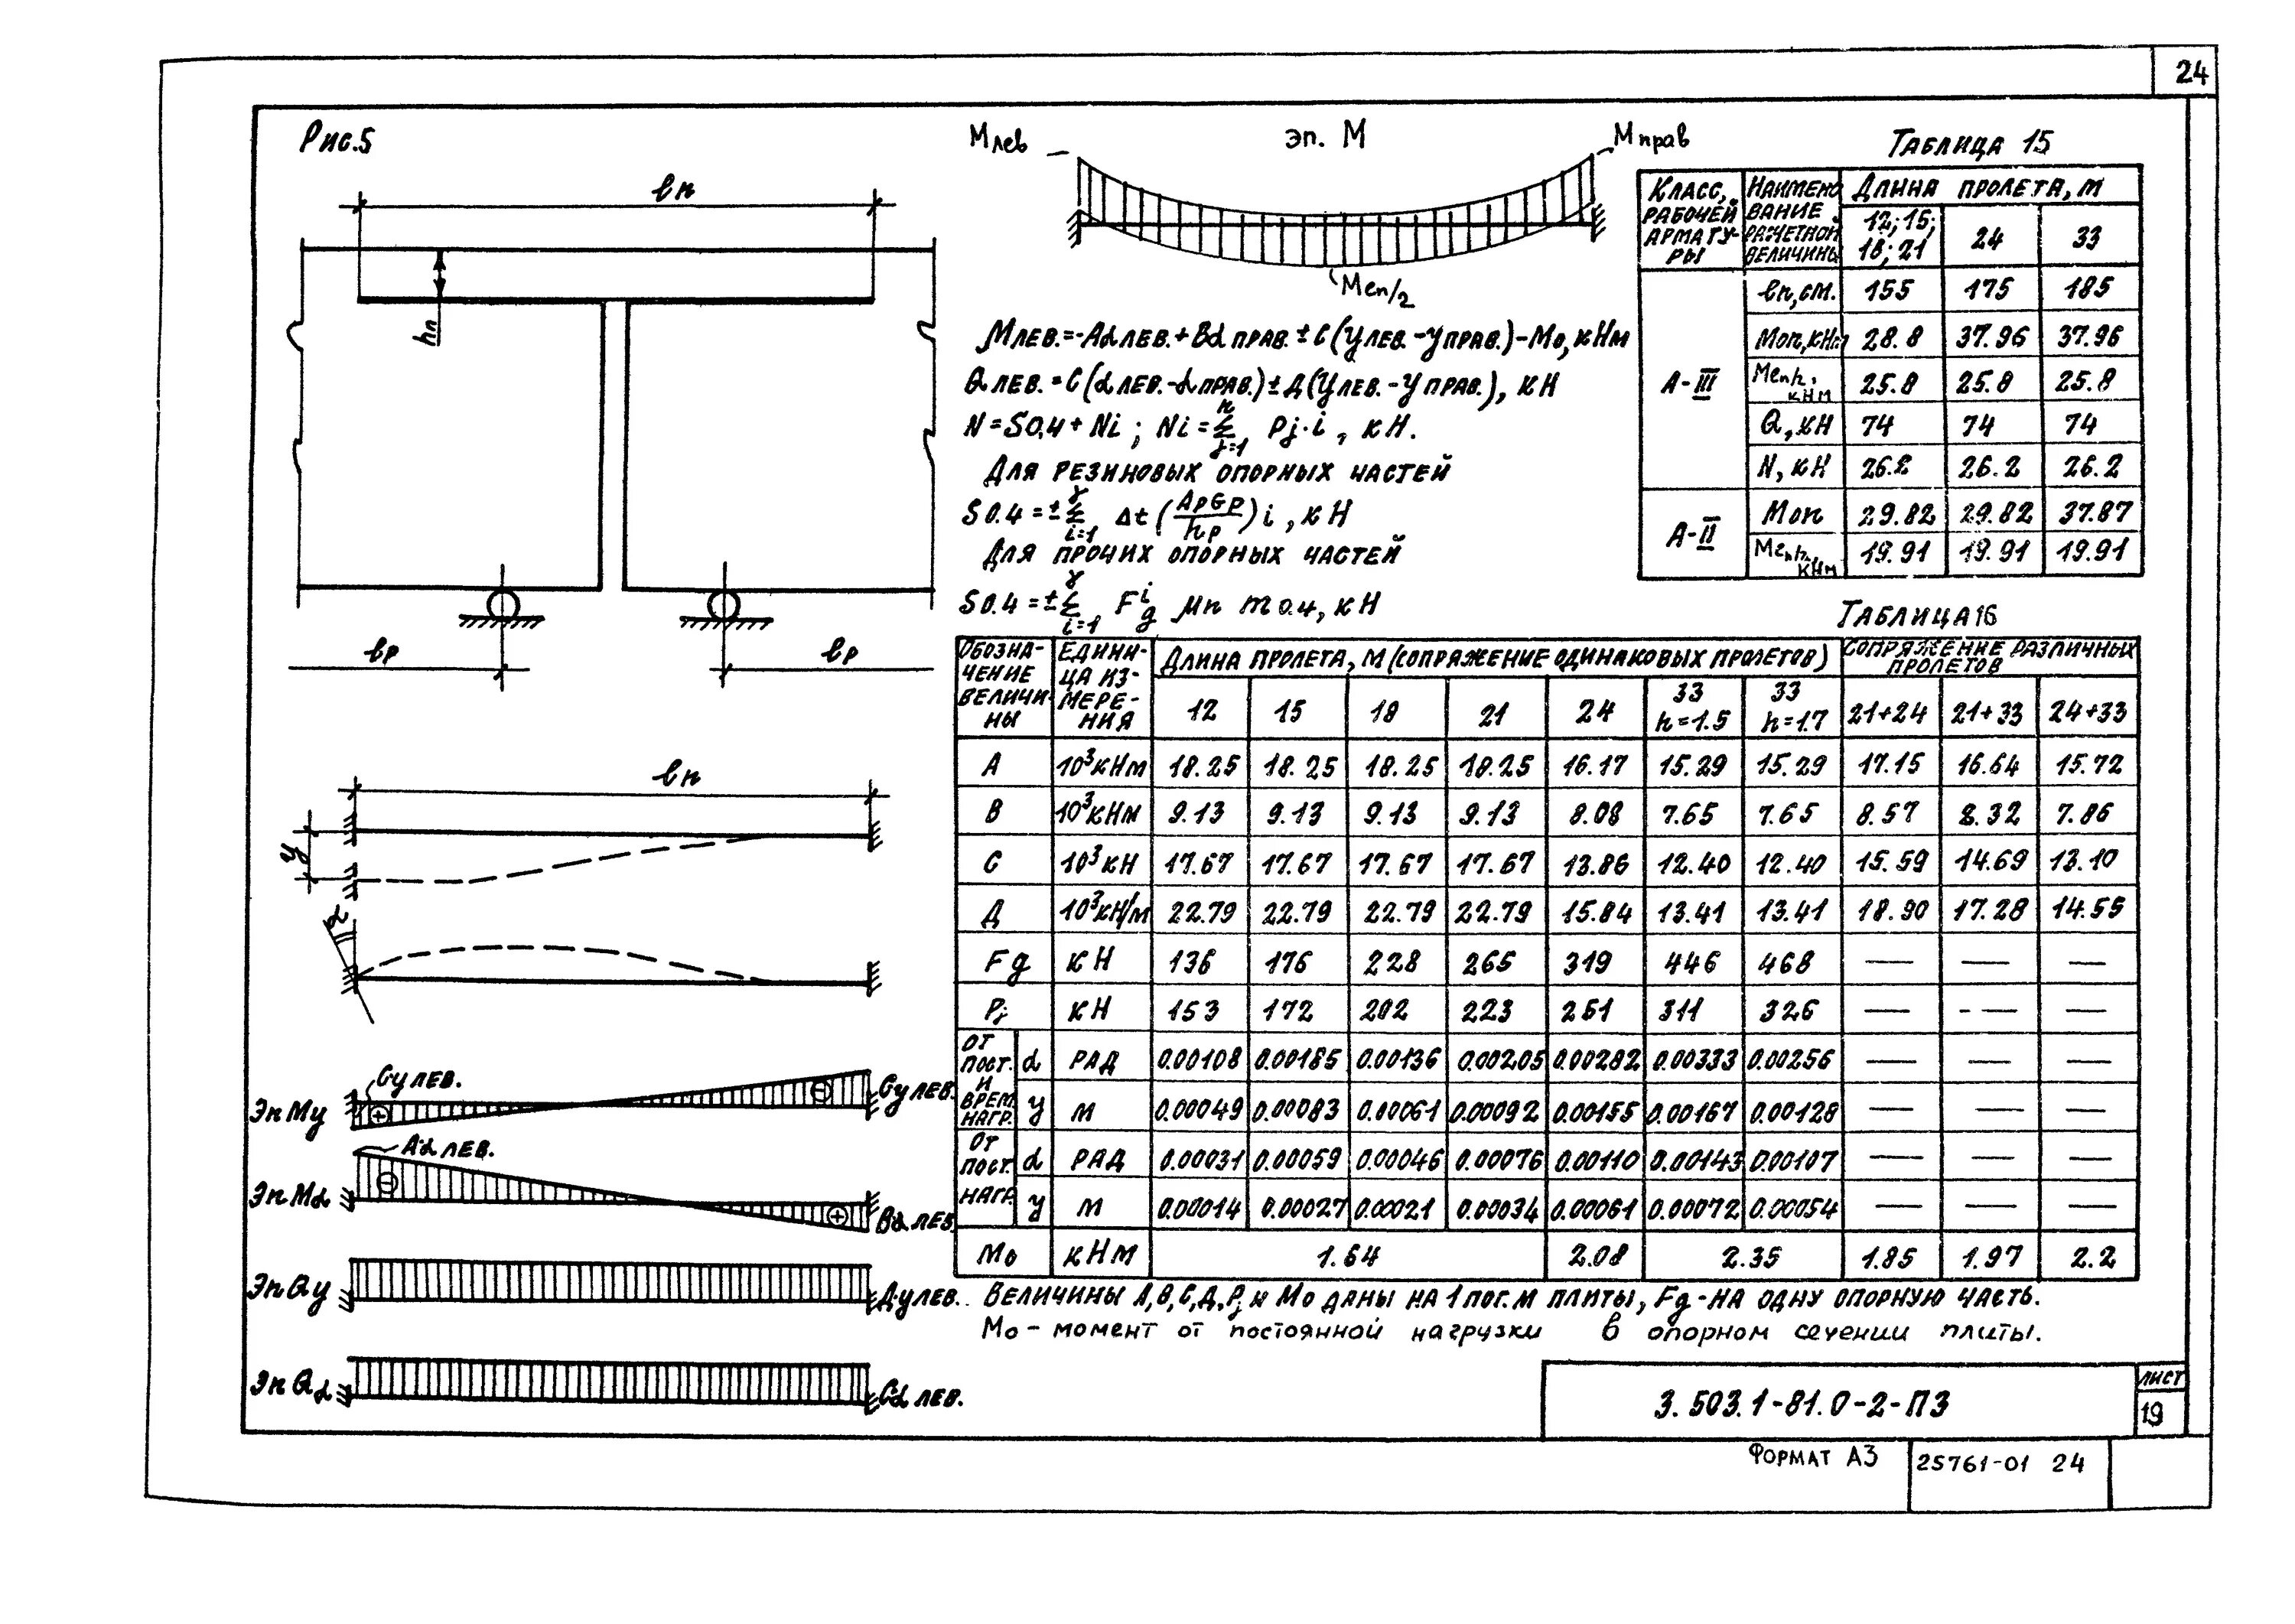 24
Рис.5
ℓп
hп
ℓр
ℓр
ℓп
y
α
Эп Му
Су лев.
Су лев.
Эп Мα
Аα лев.
Вα лев.
Эп Qу
Ду лев.
Эп Qα
Сα лев.
Млев
эп. М
Мправ
Мℓп/2
Млев.=-Аαлев.+Вαправ.±С(Улев.-Управ.)-Мо, кНм
Qлев.=С(αлев.-αправ.)±Д(Улев.-Управ.), кН
N=S0,4+Ni; Ni=Σ Pj·i, кН.
Для резиновых опорных частей
S0.4=±Σ Δt(АрGр/hр)i, кН
Для прочих опорных частей
S0.4=±Σ Fgⁱ μn m0.4, кН
Таблица 15
Класс рабочей арматуры | Наименование расчетной величины | Длина пролета, м
12; 15; 18; 21 | 24 | 33
А-III | ℓп, см. | 155 | 175 | 185
Моп, кНм | 28.8 | 37.96 | 37.96
Мℓп/2, кНм | 25.8 | 25.8 | 25.8
Q, кН | 74 | 74 | 74
N, кН | 26.2 | 26.2 | 26.2
А-II | Моп | 29.82 | 29.82 | 37.87
Мℓп/2, кНм | 19.91 | 19.91 | 19.91
Таблица 16
Обозначение величины | Единица измерения | Длина пролета, м (сопряжение одинаковых пролетов) | Сопряжение различных пролетов
12 | 15 | 18 | 21 | 24 | 33 h=1.5 | 33 h=1.7 | 21+24 | 21+33 | 24+33
А | 10³кНм | 18.25 | 18.25 | 18.25 | 18.25 | 16.17 | 15.29 | 15.29 | 17.15 | 16.64 | 15.72
В | 10³кНм | 9.13 | 9.13 | 9.13 | 9.13 | 8.08 | 7.65 | 7.65 | 8.57 | 8.32 | 7.86
С | 10³кН | 17.67 | 17.67 | 17.67 | 17.67 | 13.86 | 12.40 | 12.40 | 15.59 | 14.69 | 13.10
Д | 10³кН/м | 22.79 | 22.79 | 22.79 | 22.79 | 15.84 | 13.41 | 13.41 | 18.90 | 17.28 | 14.55
Fg | кН | 136 | 176 | 228 | 265 | 319 | 446 | 468 | — | — | —
Рj | кН | 153 | 172 | 202 | 223 | 251 | 311 | 326 | — | — | —
от пост. и врем. нагр. | α | рад | 0.00108 | 0.00185 | 0.00136 | 0.00205 | 0.00282 | 0.00333 | 0.00256 | — | — | —
у | м | 0.00049 | 0.00083 | 0.00061 | 0.00092 | 0.00155 | 0.00167 | 0.00128 | — | — | —
от пост. нагр. | α | рад | 0.00031 | 0.00059 | 0.00046 | 0.00076 | 0.00110 | 0.00143 | 0.00107 | — | — | —
у | м | 0.00014 | 0.00027 | 0.00021 | 0.00034 | 0.00061 | 0.00072 | 0.00054 | — | — | —
Мо | кНм | 1.64 | 2.08 | 2.35 | 1.85 | 1.97 | 2.2
Величины А,В,С,Д,Рj и Мо даны на 1 пог.м плиты, Fg-на одну опорную часть.
Мо - момент от постоянной нагрузки в опорном сечении плиты.
3.503.1-81.0-2-ПЗ
лист
19
Формат А3
25761-01 24